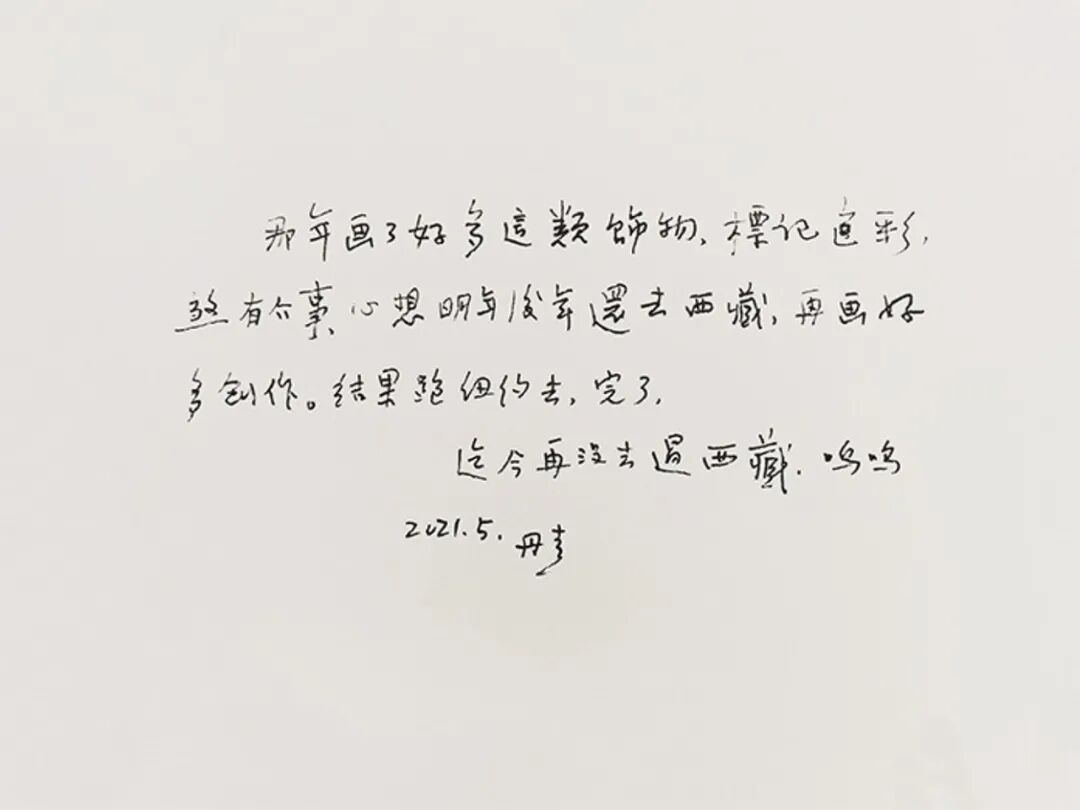 那年画了好多這類飾物、標记色彩,
煞有介事、心想明年後年還去西藏,再画好
多创作。结果跑纽约去,完了,
迄今再没去過西藏.呜呜
2021.5.丹青